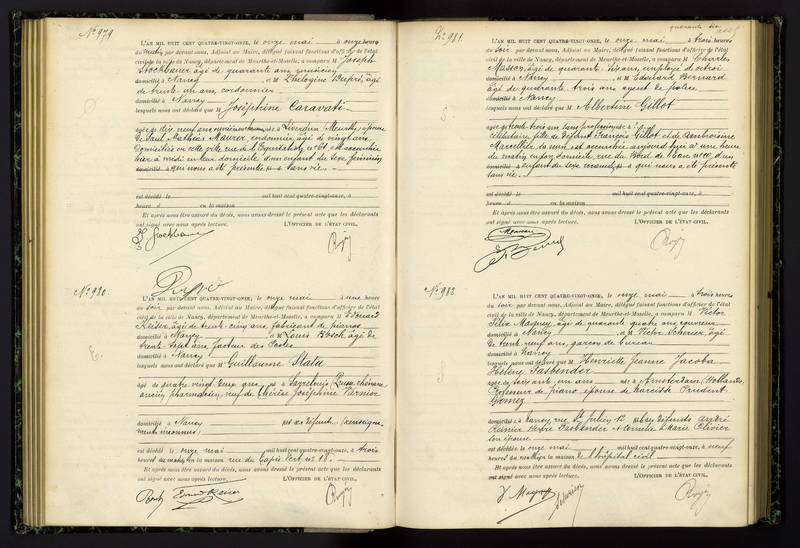 N° 979
L'AN MIL HUIT CENT QUATRE-VINGT-ONZE, le onze mai à onze heures
du matin par devant nous, Adjoint au Maire, délégué faisant fonctions d'officier de l'état
civil de la ville de Nancy, département de Meurthe-et-Moselle, a comparu M Joseph
Stockbauer âgé de quarante ans
domicilié à Nancy et M Dupré, âgé
de trente un ans, cordonnier
domicilié à Nancy
lesquels nous ont déclaré que M Joséphine Caravati
âgée de dix neuf ans née à Liverdun (Meurthe) épouse
de Paul Mathias Maurer, cordonnier, âgé de vingt ans,
domiciliés en cette ville rue de l'Équitation, n° 61, est accouchée
hier à midi en leur domicile d'un enfant du sexe féminin
qui nous a été présenté sans vie
est décédé le mil huit cent quatre-vingt-onze, à
heure d en la maison
Et après nous être assuré du décès, nous avons dressé le présent acte que les déclarants
ont signé avec nous après lecture. L'OFFICIER DE L'ÉTAT CIVIL,
Stockbauer
Dupré
N° 980.
L'AN MIL HUIT CENT QUATRE-VINGT-ONZE, le onze mai à une heure
du soir par devant nous, Adjoint au Maire, délégué faisant fonctions d'officier de l'état
civil de la ville de Nancy, département de Meurthe-et-Moselle, a comparu M Edouard
âgé de trente cinq ans, fabricant de pianos
domicilié à Nancy et M Louis Bosch, âgé de
trente sept ans facteur des Postes
domicilié à Nancy
lesquels nous ont déclaré que M Guillaume Statu
âgé de quatre vingt deux ans né à Sarrelouis (Prusse rhénane)
ancien pharmacien, veuf de Thérèse Joséphine Varnier
domicilié à Nancy fils des défunts (renseigne-
ments inconnus)
est décédé le onze mai mil huit cent quatre-vingt-onze, à trois
heures du matin en la maison rue du Tapis Vert n° 18.
Et après nous être assuré du décès, nous avons dressé le présent acte que les déclarants
ont signé avec nous après lecture. L'OFFICIER DE L'ÉTAT CIVIL,
quarante six
N° 981.
L'AN MIL HUIT CENT QUATRE-VINGT-ONZE, le onze mai à trois heures
du soir par devant nous, Adjoint au Maire, délégué faisant fonctions d'officier de l'état
civil de la ville de Nancy, département de Meurthe-et-Moselle, a comparu M Charles
âgé de quarante ans, employé d'octroi
domicilié à Nancy et M Edouard Bernard
âgé de quarante trois ans agent de police
domicilié à Nancy
lesquels nous ont déclaré que M Albertine Gillot
âgée de trente trois ans, sans profession née à
célibataire, fille de François Gillot et de
Marcellite, est accouchée aujourd'hui à une heure
du matin en son domicile, rue du Bord de l'Eau n° 110, d'un
enfant du sexe masculin qui nous a été présenté
sans vie
est décédé le mil huit cent quatre-vingt-onze, à
heure d en la maison
Et après nous être assuré du décès, nous avons dressé le présent acte que les déclarants
ont signé avec nous après lecture. L'OFFICIER DE L'ÉTAT CIVIL,
N° 982.
L'AN MIL HUIT CENT QUATRE-VINGT-ONZE, le onze mai à trois heures
du soir par devant nous, Adjoint au Maire, délégué faisant fonctions d'officier de l'état
civil de la ville de Nancy, département de Meurthe-et-Moselle, a comparu M Victor
Félix Magney, âgé de quarante quatre ans, couvreur
domicilié à Nancy et M Victor Scherier, âgé
de trente neuf ans, garçon de bureau
domicilié à Nancy
lesquels nous ont déclaré que M Henriette Jeanne Jacoba
Hélène Fasbender
âgée de soixante un ans née à Amsterdam (Hollande)
Professeur de piano épouse de Narcisse Prudent
Gomez
domiciliée à Nancy, rue St Julien, 12 fille des défunts André
Reinier Fasbender et Cornélie Marie Olivier
son épouse
est décédée le onze mai mil huit cent quatre-vingt-onze, à neuf
heures du matin en la maison de l'hôpital civil
Et après nous être assuré du décès, nous avons dressé le présent acte que les déclarants
ont signé avec nous après lecture. L'OFFICIER DE L'ÉTAT CIVIL,
V Magney